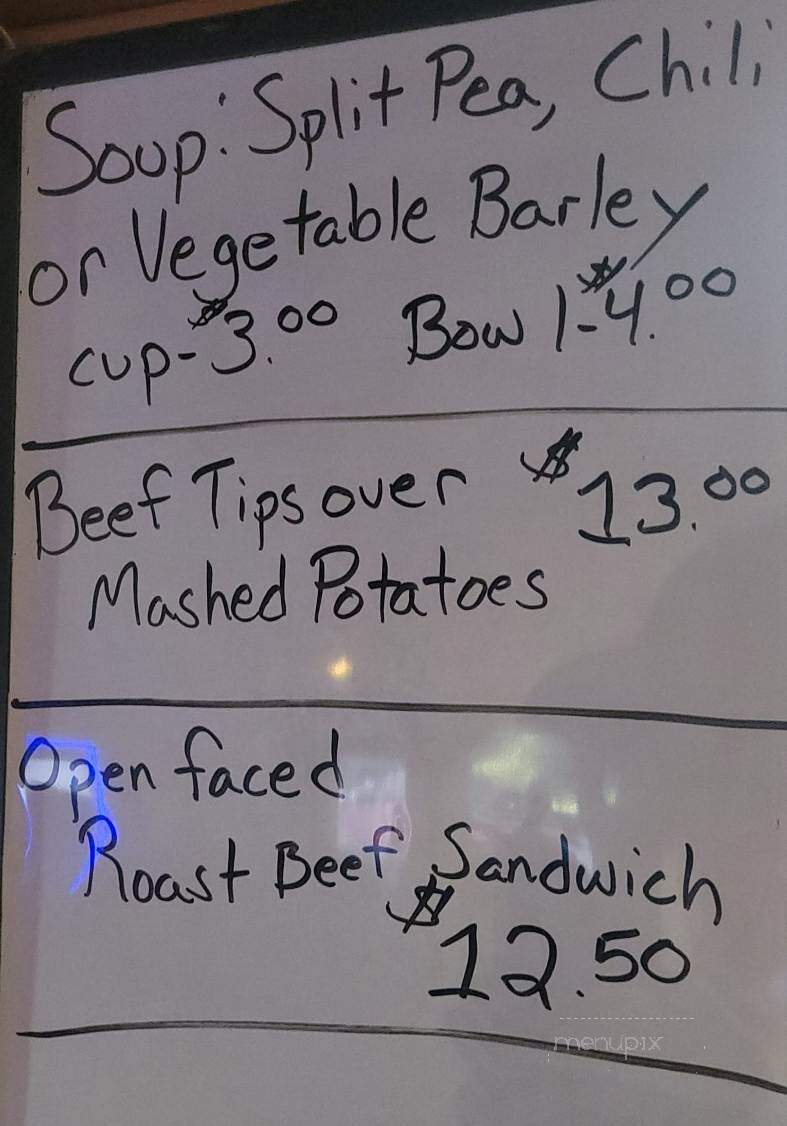 Soup: Split Pea, Chili
or Vegetable Barley
cup-$3.00 Bowl-$4.00
Beef Tips over $13.00
Mashed Potatoes
Open faced
Roast Beef Sandwich
$12.50
menupix